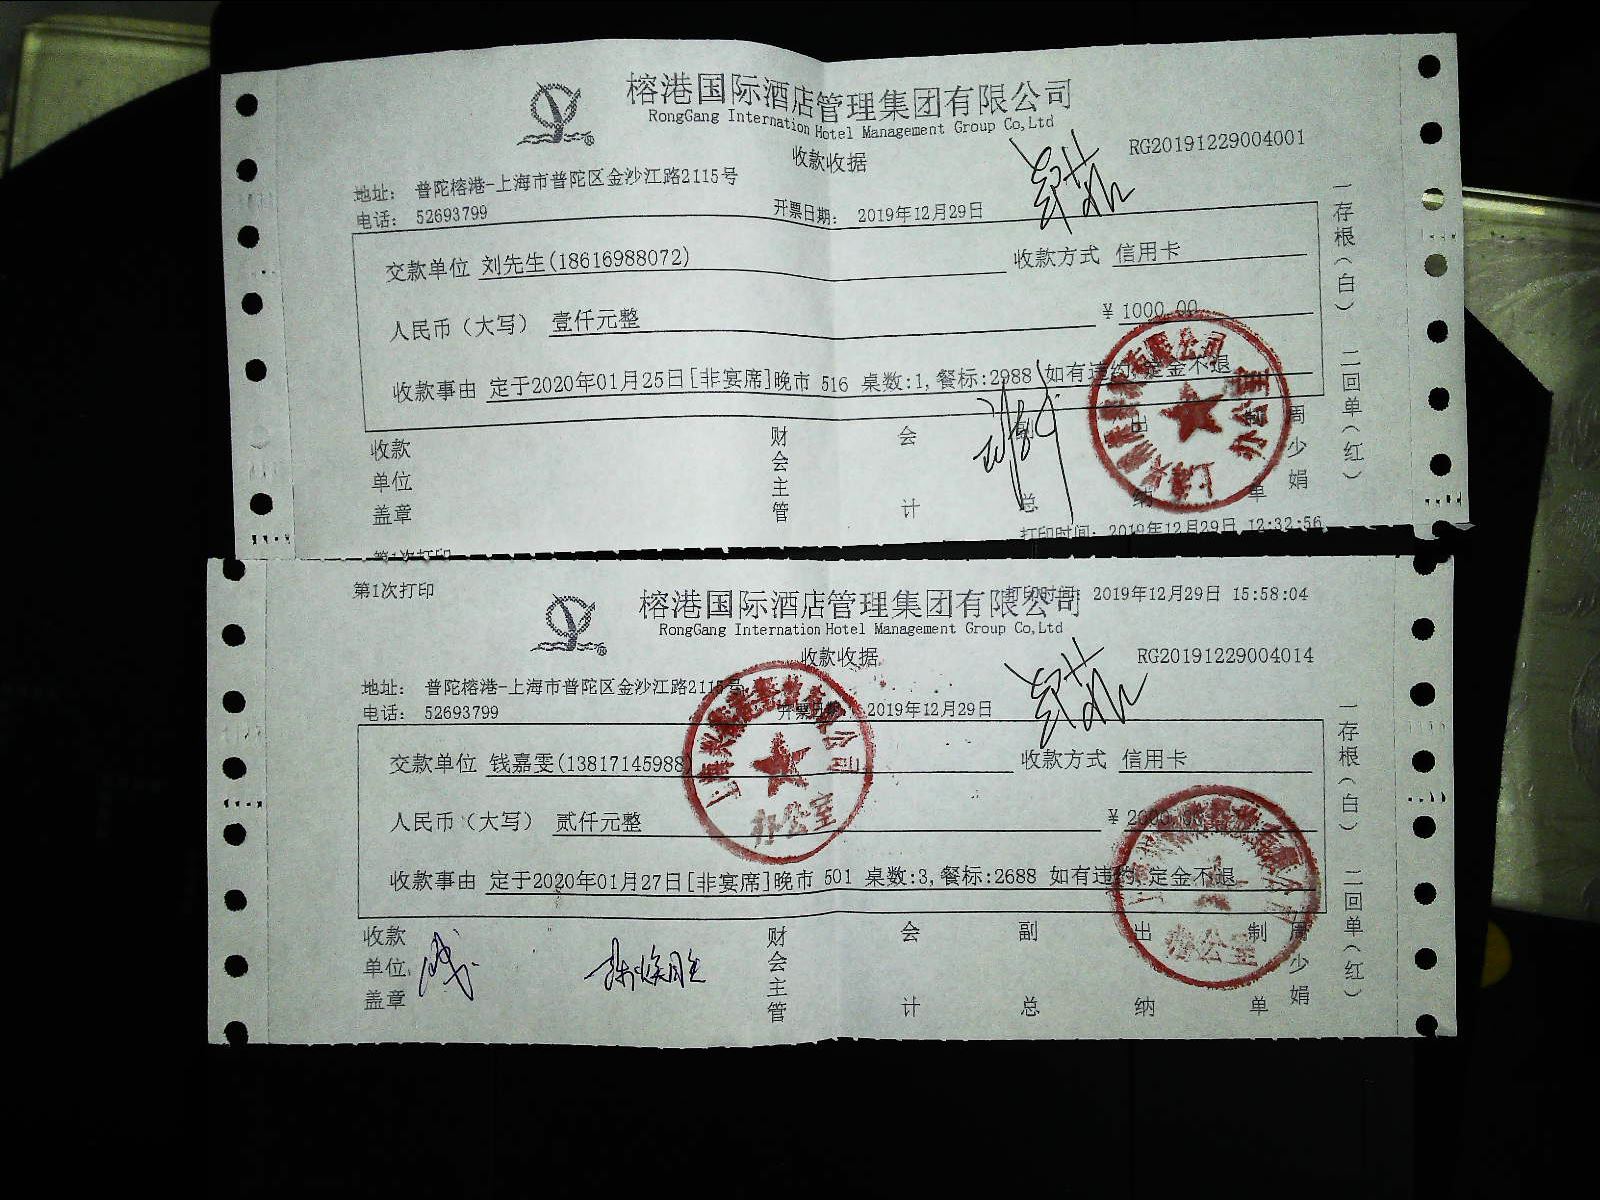 榕港国际酒店管理集团有限公司
RongGang Internation Hotel Management Group Co,Ltd
收款收据
RG20191229004001
地址： 普陀榕港-上海市普陀区金沙江路2115号
电话： 52693799
开票日期： 2019年12月29日
交款单位 刘先生(18616988072)
收款方式 信用卡
人民币（大写） 壹仟元整
￥ 1000.00
收款事由 定于2020年01月25日[非宴席]晚市 516 桌数:1,餐标:2988 如有违约,定金不退
收款单位盖章
财会主管
会计
副总
出纳
单
周少娟
一存根（白） 二回单（红）
打印时间： 2019年12月29日 12:32:56
第1次打印
第1次打印
打印时间： 2019年12月29日 15:58:04
榕港国际酒店管理集团有限公司
RongGang Internation Hotel Management Group Co,Ltd
收款收据
RG20191229004014
地址： 普陀榕港-上海市普陀区金沙江路2115号
电话： 52693799
开票日期： 2019年12月29日
交款单位 钱嘉雯(13817145988)
收款方式 信用卡
人民币（大写） 贰仟元整
￥ 2000.00
收款事由 定于2020年01月27日[非宴席]晚市 501 桌数:3,餐标:2688 如有违约,定金不退
收款单位盖章
财会主管
会计
副总
出纳
制单
周少娟
一存根（白） 二回单（红）
办公室
办公室
办公室